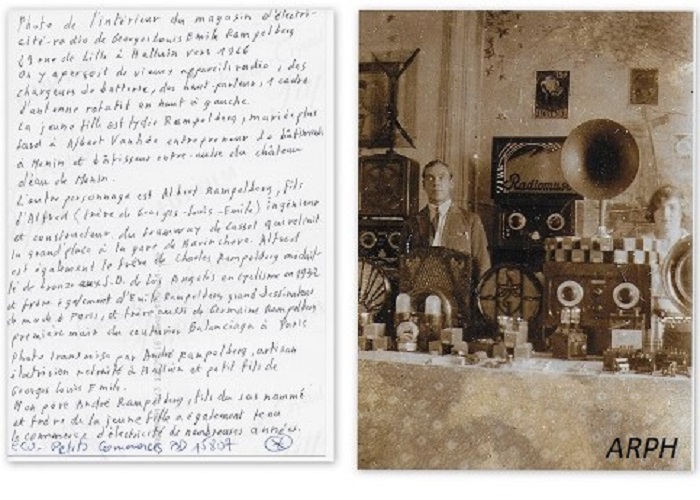 Photo de l'intérieur du magasin d'électri-
cité-radio de Georges Louis Emile Rampelberg
29 rue de Lille à Halluin vers 1926
On y aperçoit de vieux appareils radio, des
chargeurs de batterie, des haut-parleurs, 1 cadre
d'antenne rotatif en haut à gauche.
La jeune fille est Lydie Rampelberg, mariée plus
tard à Albert Vanhée entrepreneur de bâtiments
à Menin et bâtisseur entre-autre du château
d'eau de Menin.
L'autre personnage est Albert Rampelberg, fils
d'Alfred (frère de Georges-Louis-Emile) ingénieur
et constructeur du tramway de Cassel qui reliait
la grand place à la gare de Bavinchove. Alfred
est également le frère de Charles Rampelberg médail-
lé de bronze aux J.O. de Los Angelès en cyclisme en 1932
et frère également d'Emile Rampelberg grand dessinateur
de mode à Paris, et frère aussi de Germaine Rampelberg
première main du couturier Balanciaga à Paris
Photo transmise par André Rampelberg, artisan
électricien retraité à Halluin et petit fils de
Georges Louis Emile.
Mon père André Rampelberg, fils du sus nommé
et frère de la jeune fille a également tenu
le commerce d'électricité de nombreuses années.
Petits Commerces BD 15807
Radiomuse
ARPH